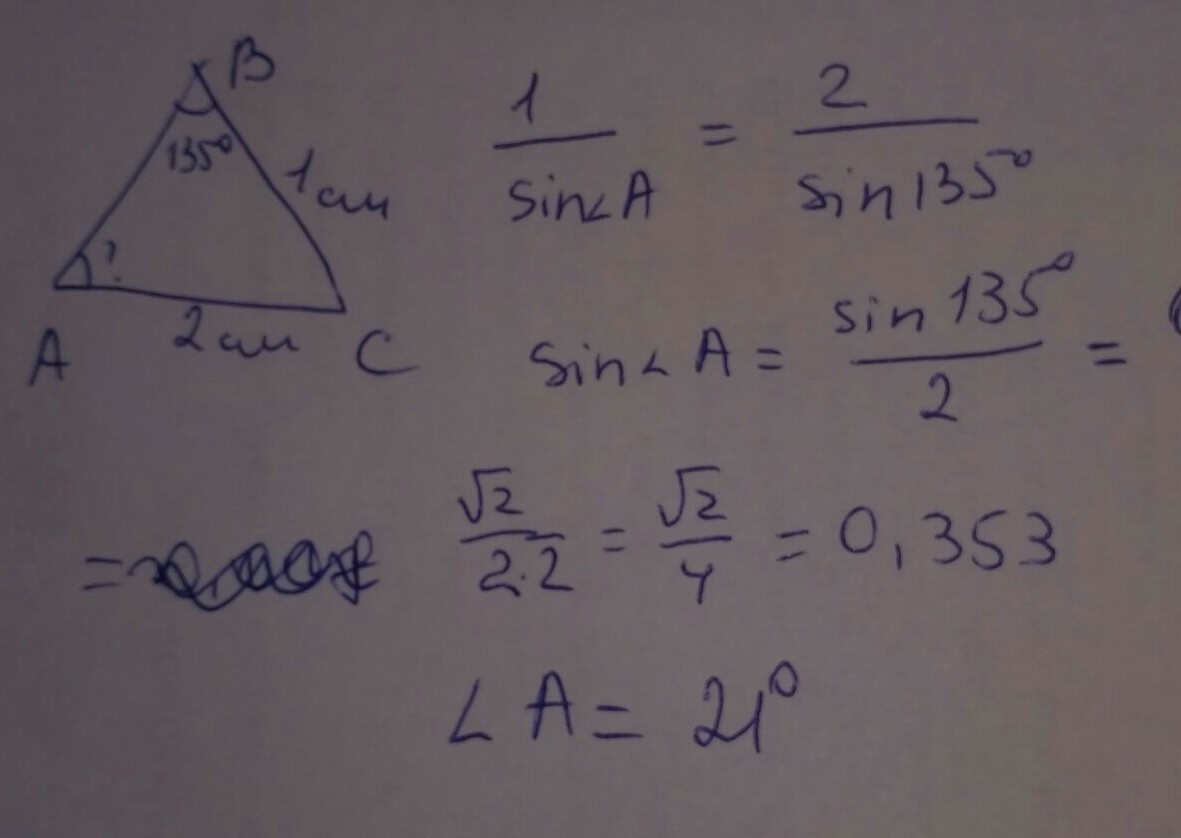 B
135°
1 см
?
A
2 см
C
1/sin∠A = 2/sin 135°
sin∠A = sin 135°/2 =
= √2/2·2 = √2/4 = 0,353
∠A = 21°